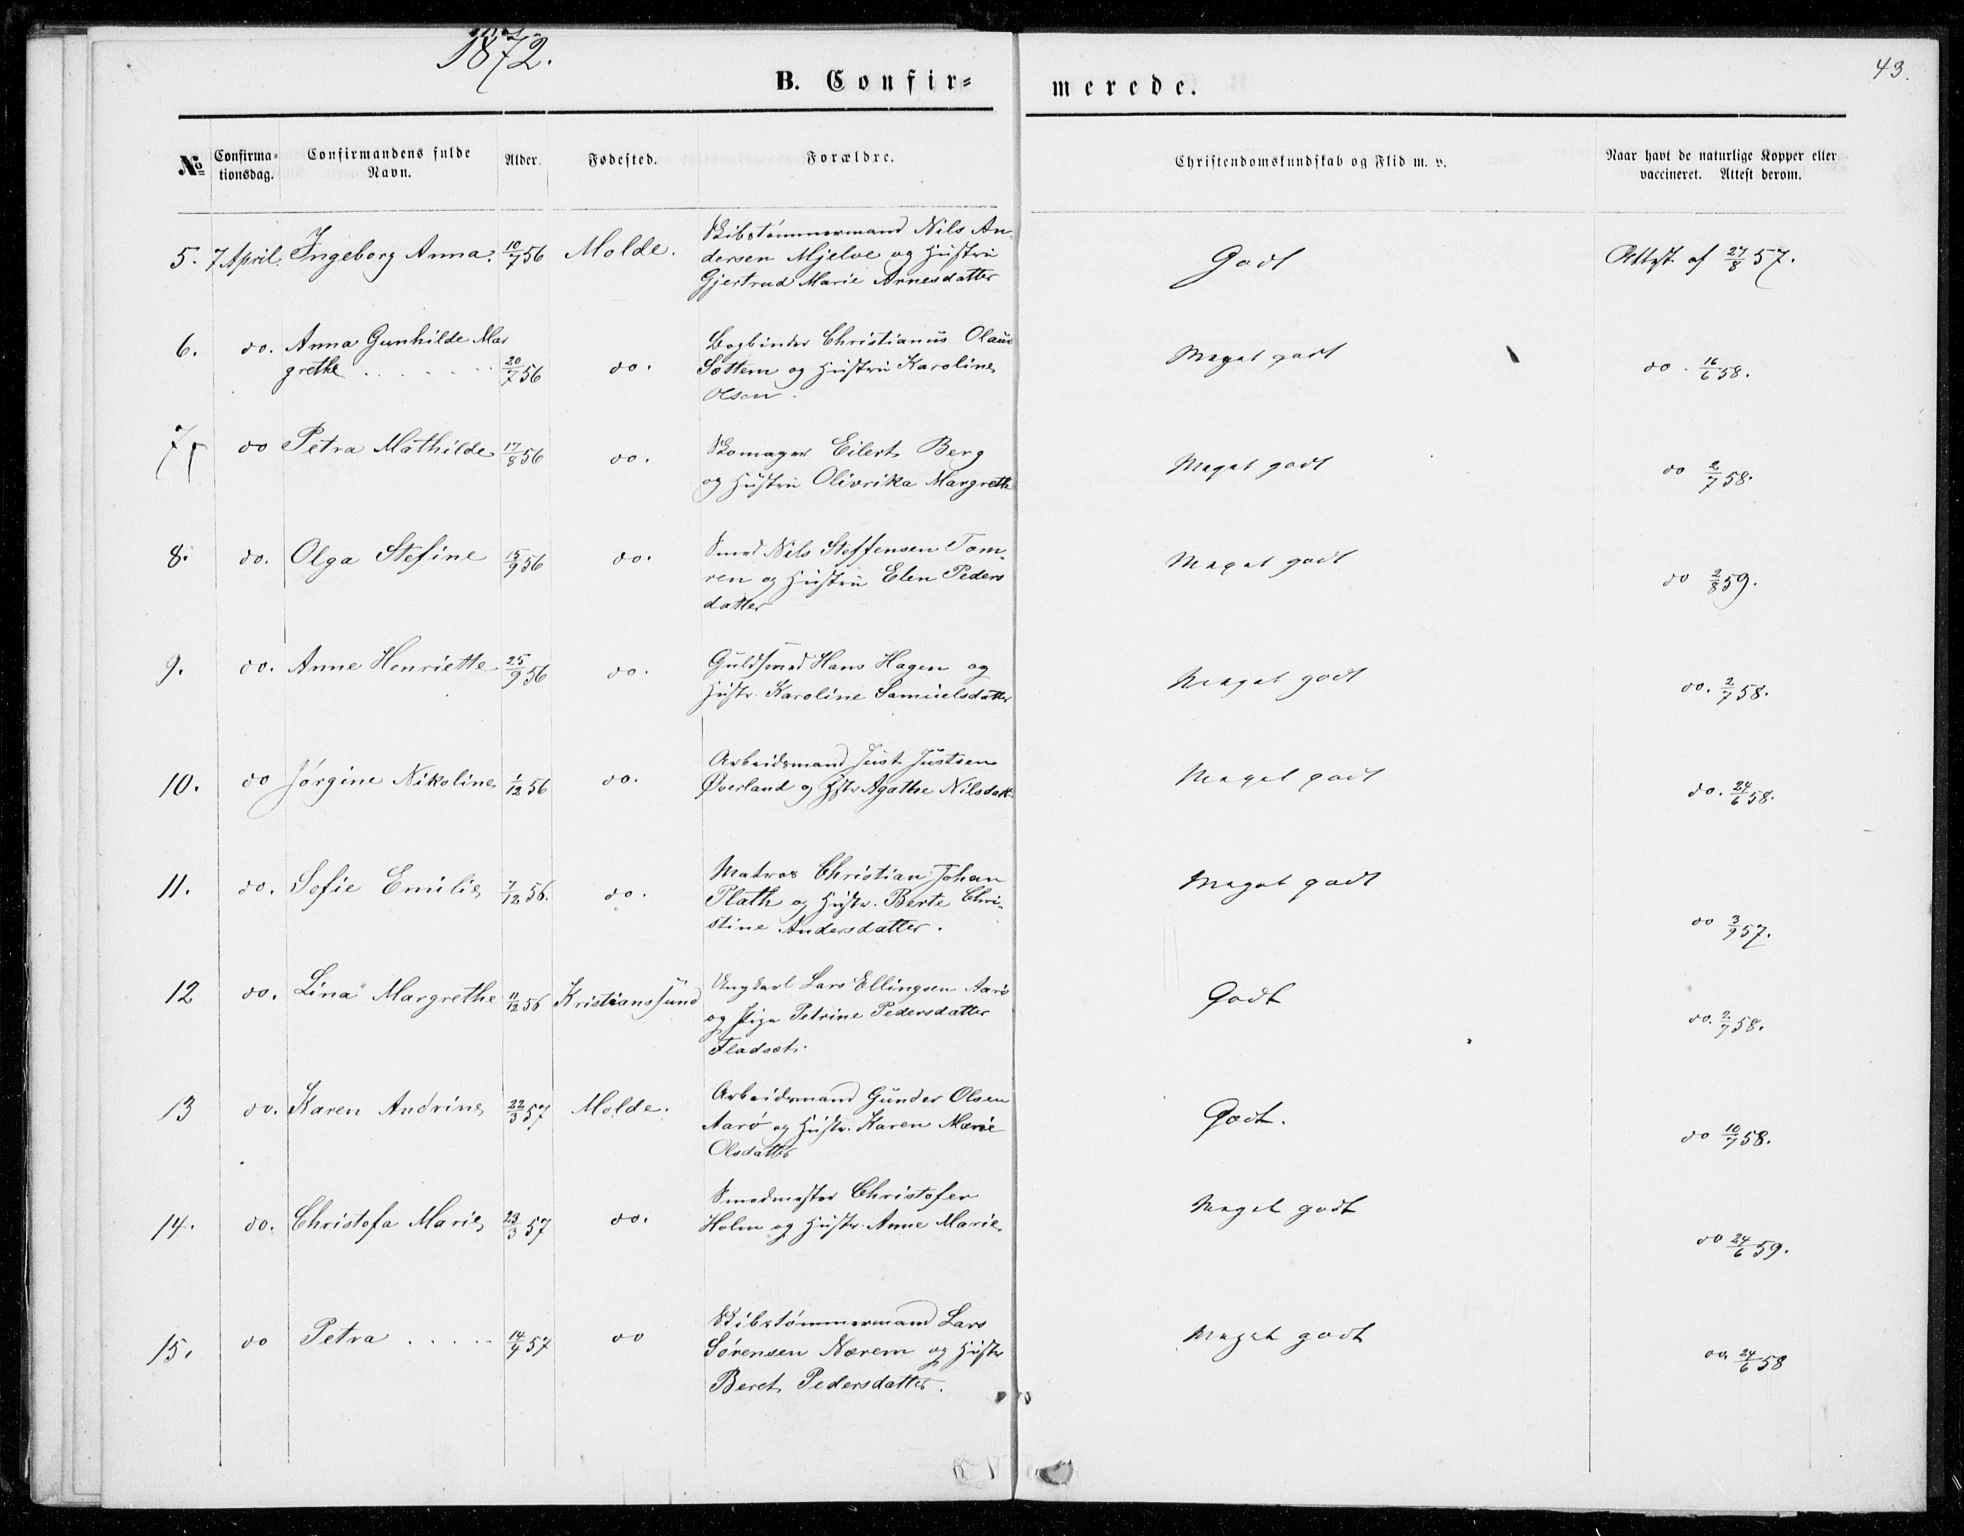 1872.
43.
B. Confir= merede.
No
Confirma=
tionsdag.
Confirmandens fulde
Navn.
Alder.
Fødested.
Forældre.
Christendomskundskab og Flid m. v.
Naar havt de naturlige Kopper eller
vaccineret. Attest derom.
5. 7 April. Ingeborg Anna. 10/7 56 Molde. Skibstømmermand Nils An-
dersen Mjelve og Hustru
Gjertrud Marie Arnesdatter
Godt
Attest af 27/8 57.
6. do. Anna Gunhilde Mar
grethe . . . . . . . 20/7 56 do. Bogbinder Christianus Olaus
Sottem og Hustru Karoline
Olsen.
Meget godt
do. 16/6 58.
7 do Petra Mathilde 17/8 56 do. Skomager Eilert Berg
og Hustru Olivrika Margrethe
Meget godt
do 2/7 58.
8. do. Olga Stefine 15/9 56 do. Smed Nils Steffensen Tom-
ren og Hustru Elen Peders
datter
Meget godt
do 2/8 59.
9. do. Anne Henriette 25/9 56 do. Guldsmed Hans Hagen og
Hustr. Karoline Samuelsdatter
Meget godt
do. 2/7 58.
10. do Jørgine Nikoline 1/12 56 do. Arbeidsmand Just Justsen
Øverland og Hstr Agathe Nilsdatt
Meget godt
do. 24/6 58.
11. do. Sofie Emilie 7/12 56. do. Matros Christian Johan
Plath og Hustr. Berte Chri-
stine Andersdatter.
Meget godt
do 3/9 57.
12 do. Lina Margrethe 11/12 56 Kristianssund Ungkarl Lars Ellingsen Aarø
og Pige Petrine Pedersdatter
Fladset.
Godt
do. 2/7 58.
13 do. Karen Andrine 22/3 57 Molde. Arbeidsmand Gunder Olsen
Aarø og Hustr. Karen Marie
Olsdatter
Godt.
do 10/7 58.
14. do. Christofa Marie 23/3 57 do. Smedmester Christofer
Holm og Hustr. Anne Marie
Meget godt
do 24/6 59.
15. do Petra . . . . . 14/4 57 do Skibstømmermand Lars
Sørensen Nærem og Hustr
Beret Pedersdatter.
Meget godt
do. 24/6 58